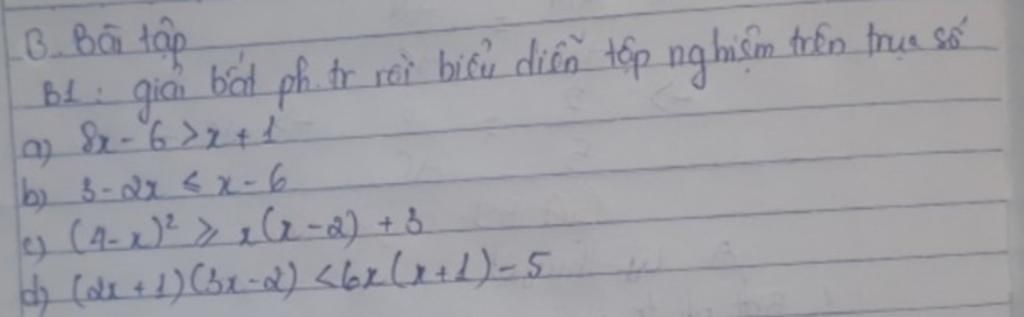 B. Bài tập
B1: giải bất ph.tr rồi biểu diễn tập nghiệm trên trục số
a) 8x - 6 > x + 1
b) 3 - 2x ≤ x - 6
c) (4 - x)² ≥ x(x - 2) + 3
d) (2x + 1)(3x - 2) < 6x(x + 1) - 5